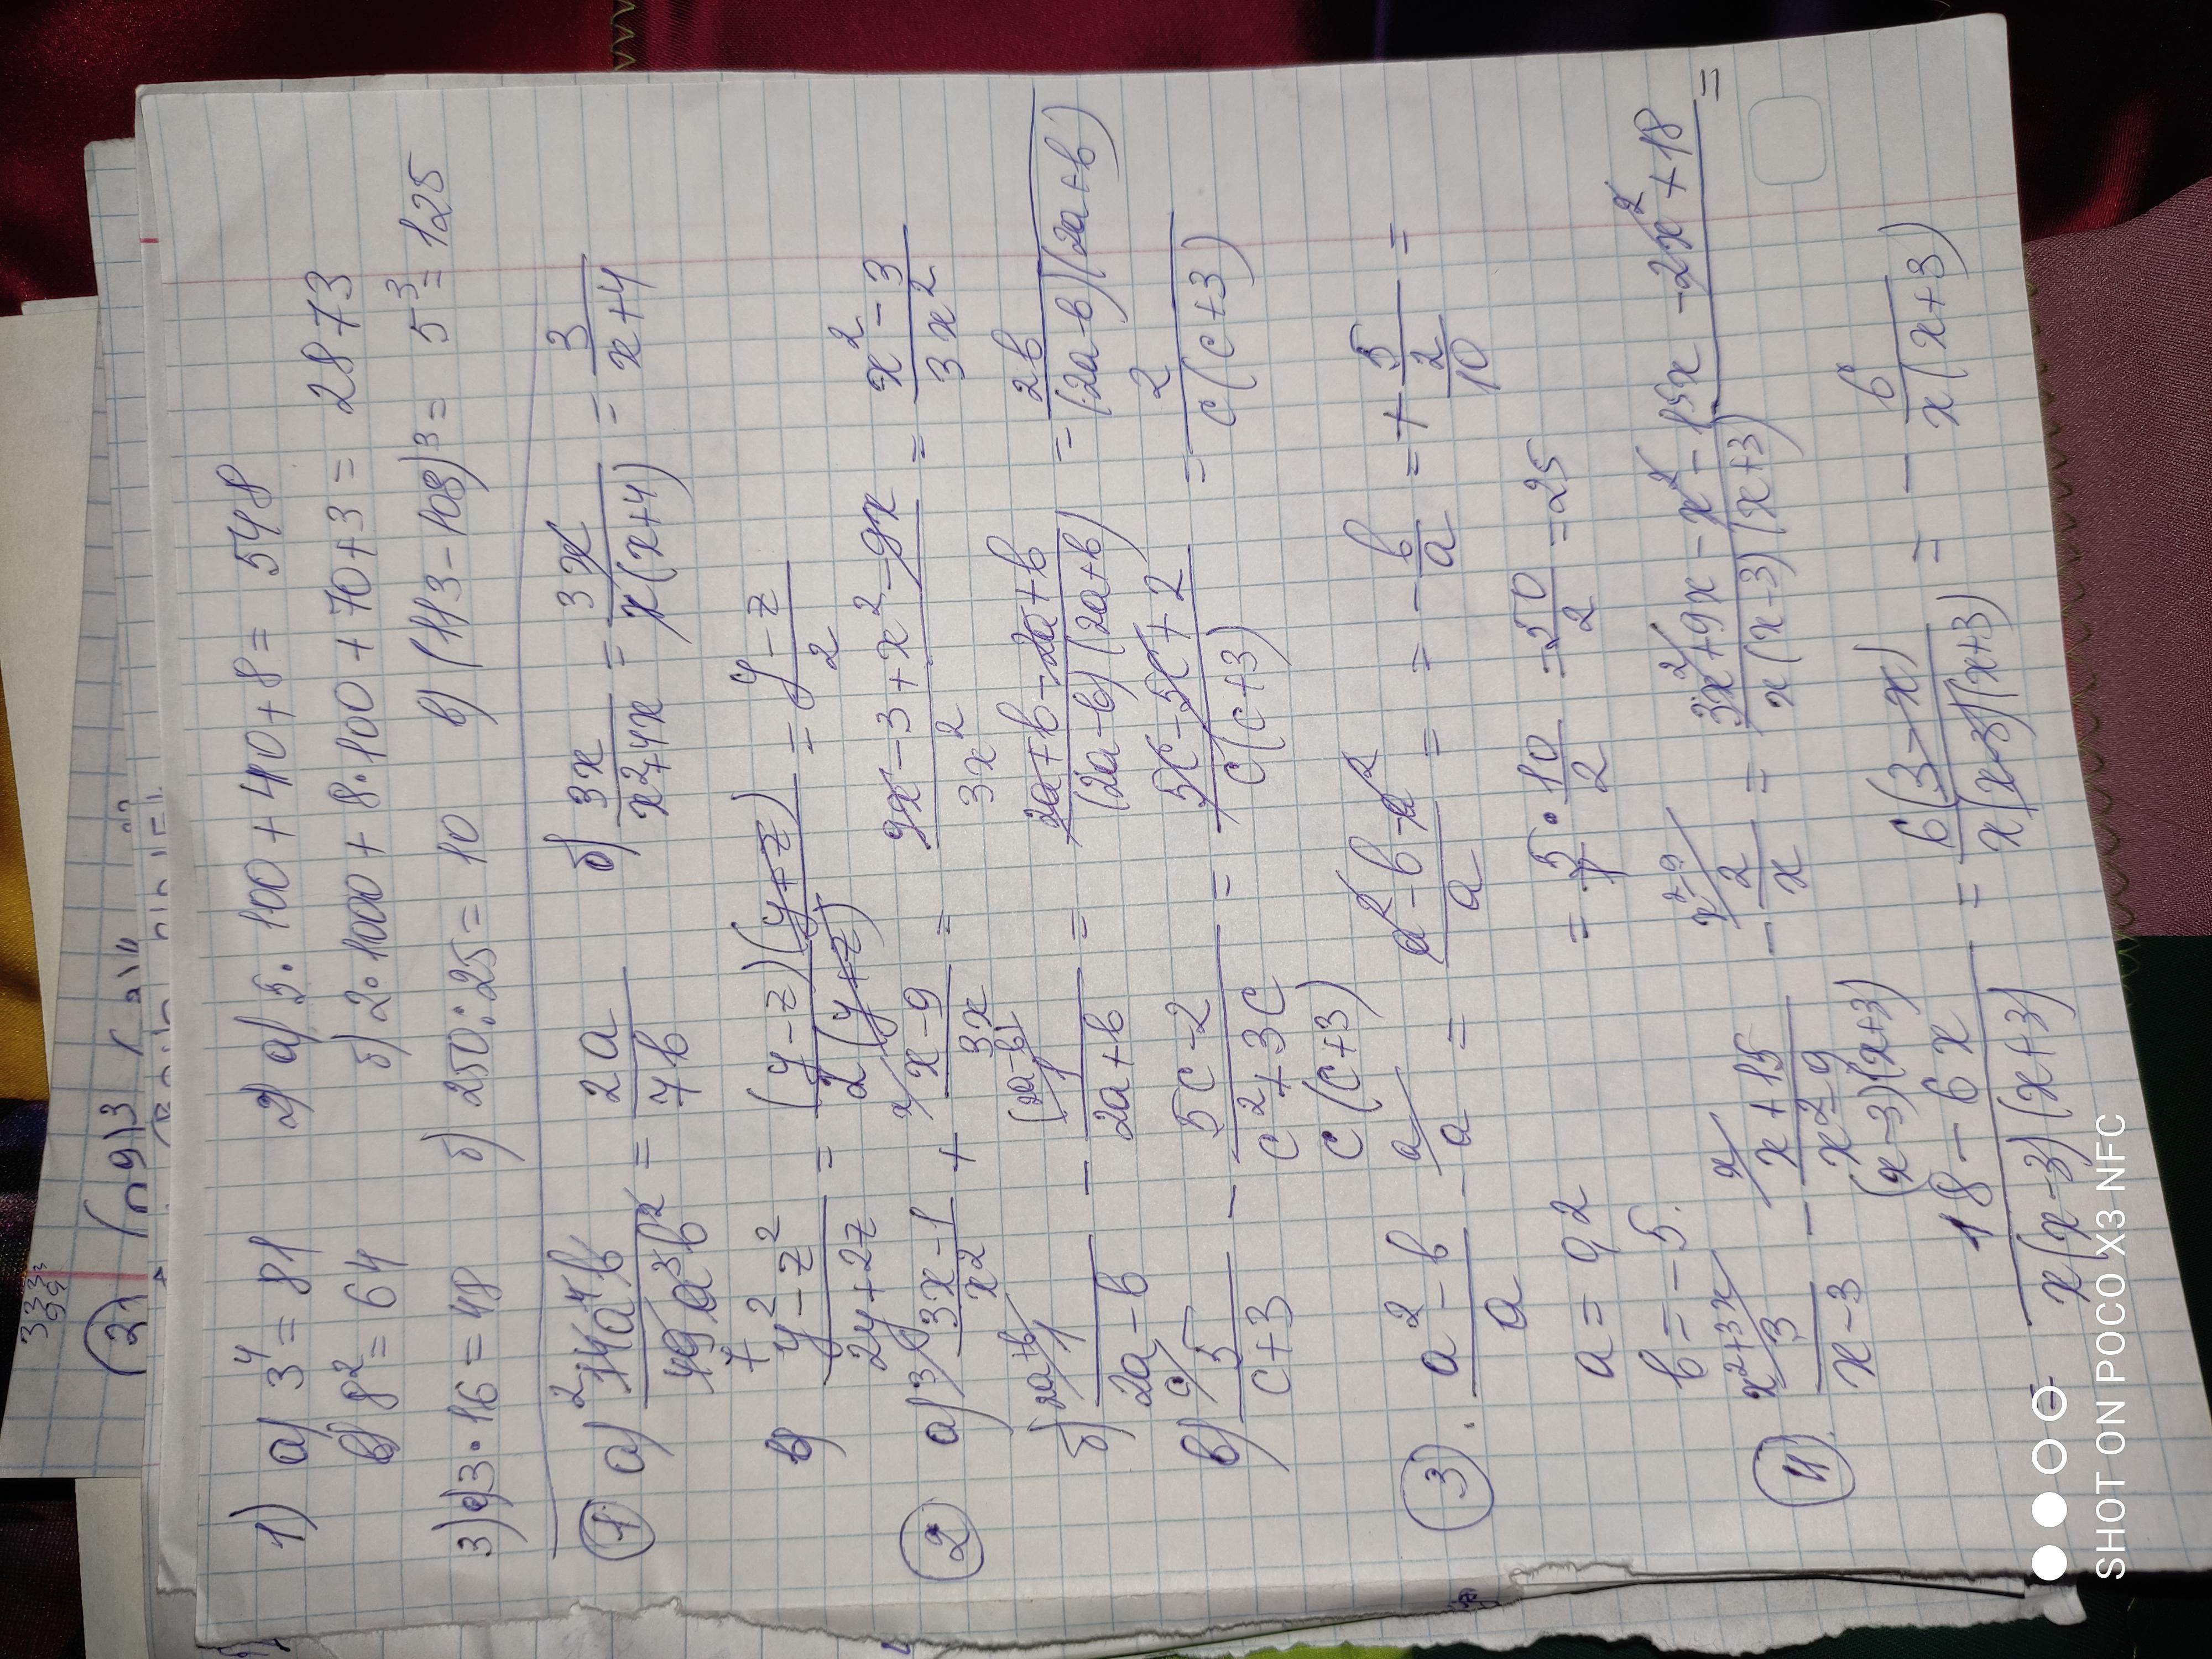 1) а) 3⁴ = 81   2) а) 5 · 100 + 40 + 8 = 548
в) 8² = 64   б) 2 · 1000 + 8 · 100 + 70 + 3 = 2873
3) а) 3 · 16 = 48   б) 250 : 25 = 10   в) (113 - 108)³ = 5³ = 125
① а) 14a⁴b / 49a³b² = 2a / 7b   б) 3x / x²+4x = 3x / x(x+4) = 3 / x+4
в) y² - z² / 2y + 2z = (y - z)(y + z) / 2(y + z) = y - z / 2
② а) 3x - 1 / x² + x - 9 / 3x = 9x - 3 + x² - 9x / 3x² = x² - 3 / 3x²
б) 1 / 2a - b - 1 / 2a + b = 2a + b - 2a + b / (2a - b)(2a + b) = 2b / (2a - b)(2a + b)
в) 5 / c + 3 - 5c - 2 / c² + 3c = 5c - 5c + 2 / c(c + 3) = 2 / c(c + 3)
c(c + 3)
③. a² - b / a - a = a² - b - a² / a = = - b / a = + 5 / 2/10 =
a = 0,2   = 5 / 1 · 10 / 2 = 50 / 2 = 25
b = -5.
④. 3 / x - 3 - x + 15 / x² - 9 - 2 / x = 3x² + 9x - x² - 15x - 2x² + 18 / x(x - 3)(x + 3) =
(x - 3)(x + 3)
= 18 - 6x / x(x - 3)(x + 3) = 6(3 - x) / x(x - 3)(x + 3) = - 6 / x(x + 3)
SHOT ON POCO X3 NFC